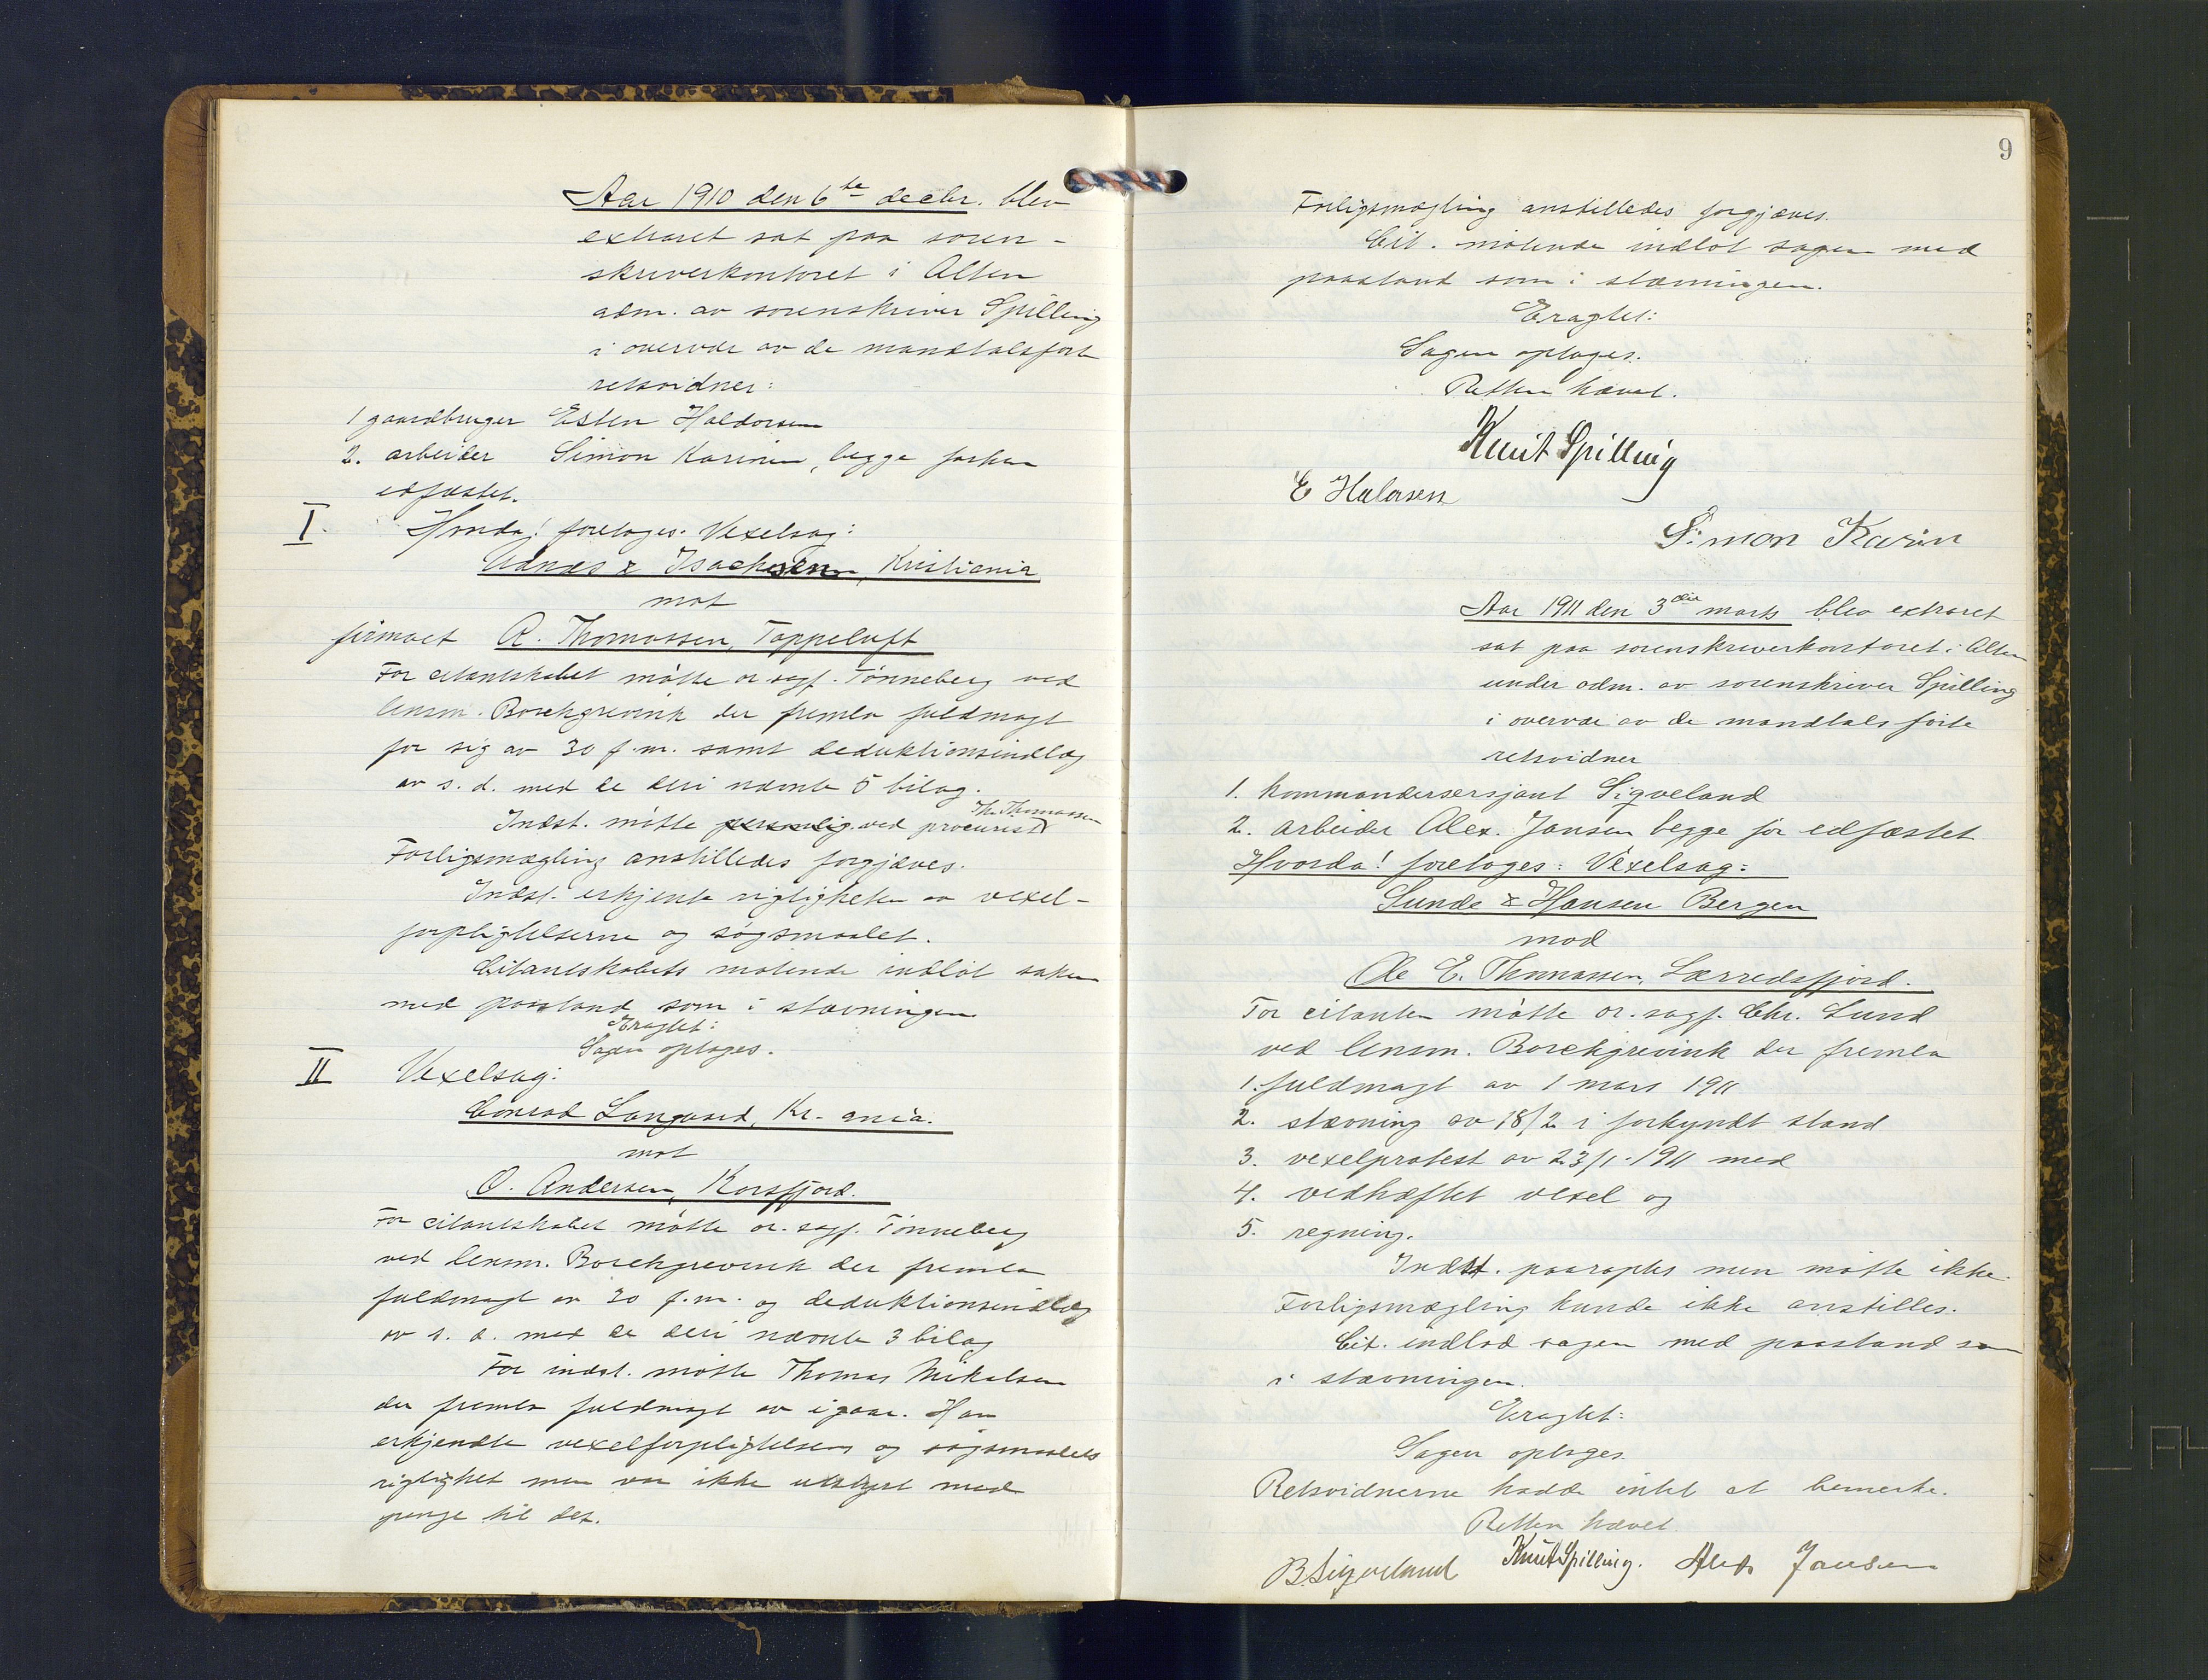 Aar 1910 den 6te decbr. blev
extraret sat paa soren-
skriverkontoret i Alten
adm. av sorenskriver Spilling
i overvær av de mandtalsførte
retsvidner:
1 gaardbruger Esten Haldorsen
2. arbeider Simon Karinen, begge forhen
edfæstet.
I. Hvorda! foretages. Vexelsag:
Udnæs & Isachsen, Kristiania
mot
firmaet R. Thomassen, Tappeluft
For citantskabet møtte or. sagf. Tønneberg ved
lensm. Borchgrevink der fremla fuldmagt
for sig av 30 f.m. samt deduktionsindlæg
av s. d. med de deri nævnte 5 bilag.
Indst. møtte personlig ved procurist Th. Thomassen
Forligsmægling anstilledes forgjæves.
Indst. erkjente rigtigheten av vexel-
forpligtelserne og søgsmaalet.
Citantskabets møtende indlot saken
med paastand som i stævningen
Eragtet:
Sagen optages.
II Vexelsag:
Conrad Langaard, Kr-ania.
mot
O. Andersen, Korsfjord.
For citantskabet møtte or. sagf. Tønneberg
ved lensm. Borchgrevink der fremla
fuldmagt av 30 f.m. og deduktionsindlæg
av s. d. med de deri nævnte 3 bilag
For indst. møtte Thomas Mikalsen
der fremla fuldmagt av igaar. Han
erkjendte vexelforpligtelsen og søgsmaalets
rigtighet men var ikke utstyrt med
penge til det.
9
Forligsmægling anstilledes forgjæves.
Cit. møtende indlot sagen med
paastand som i stævningen.
Eragtet:
Sagen optages.
Retten hævet.
Knut Spilling
E Halorsen
Simon Karin
Aar 1911 den 3die marts blev extraret
sat paa sorenskriverkontoret i Alten
under adm. av sorenskriver Spilling
i overvær av de mandtalsførte
retsvidner
1. kommandersersjant Sigveland
2. arbeider Alex. Jansen begge før edfæstet
Hvorda! foretages: Vexelsag:
Sunde & Hansen Bergen
mod
Ole E. Thomassen, Lærredsfjord.
For citanten møtte or. sagf. Chr. Lund
ved lensm. Borchgrevink der fremla
1. fuldmagt av 1 mars 1911
2. stævning av 18/2 i forkyndt stand
3. vexelprotest av 23/1-1911 med
4. vedhæftet vexel og
5. regning.
Indst. paaraptes men møtte ikke.
Forligsmægling kunde ikke anstilles.
Cit. indlod sagen med paastand som
i stævningen.
Eragtet:
Sagen optages.
Retsvidnerne hadde intet at bemerke.
Retten hævet.
B. Sigveland Knut Spilling. Alex Jansen